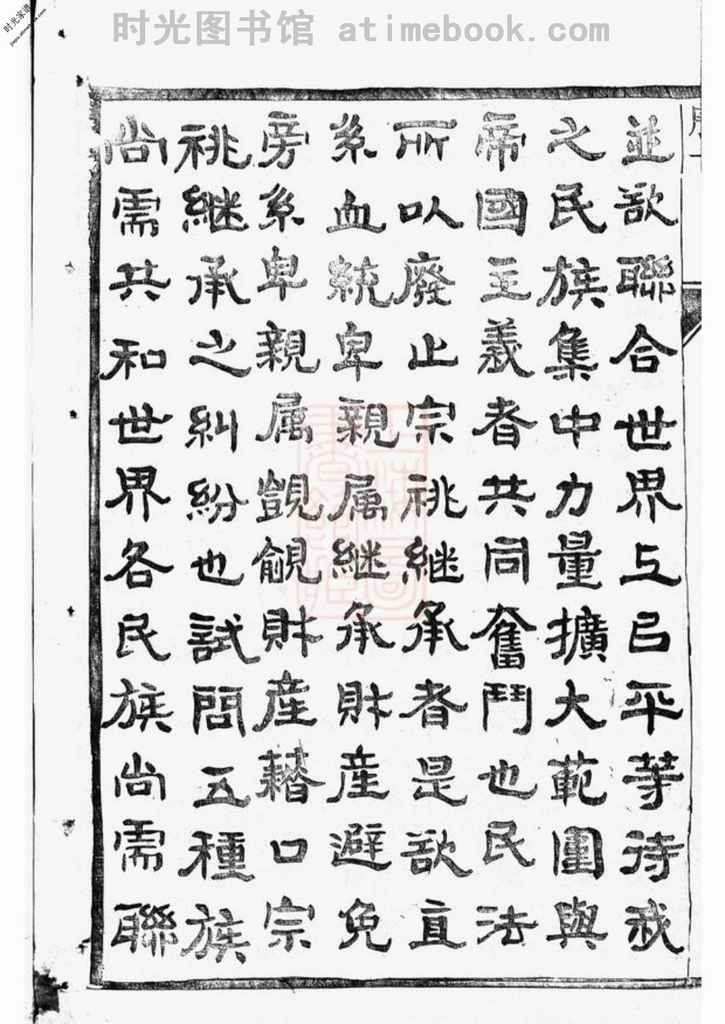 时光图书馆 atimebook.com
时光家谱
並欲聯合世界上以平等待我
之民族集中力量擴大範圍與
帝國主義者共同奮鬥也民法
所以廢止宗祧継承者是欲直
系血統卑親属継承財產避免
旁系卑親属覬覦財產藉口宗
祧継承之糾紛也試問五種族
尚需共和世界各民族尚需聯